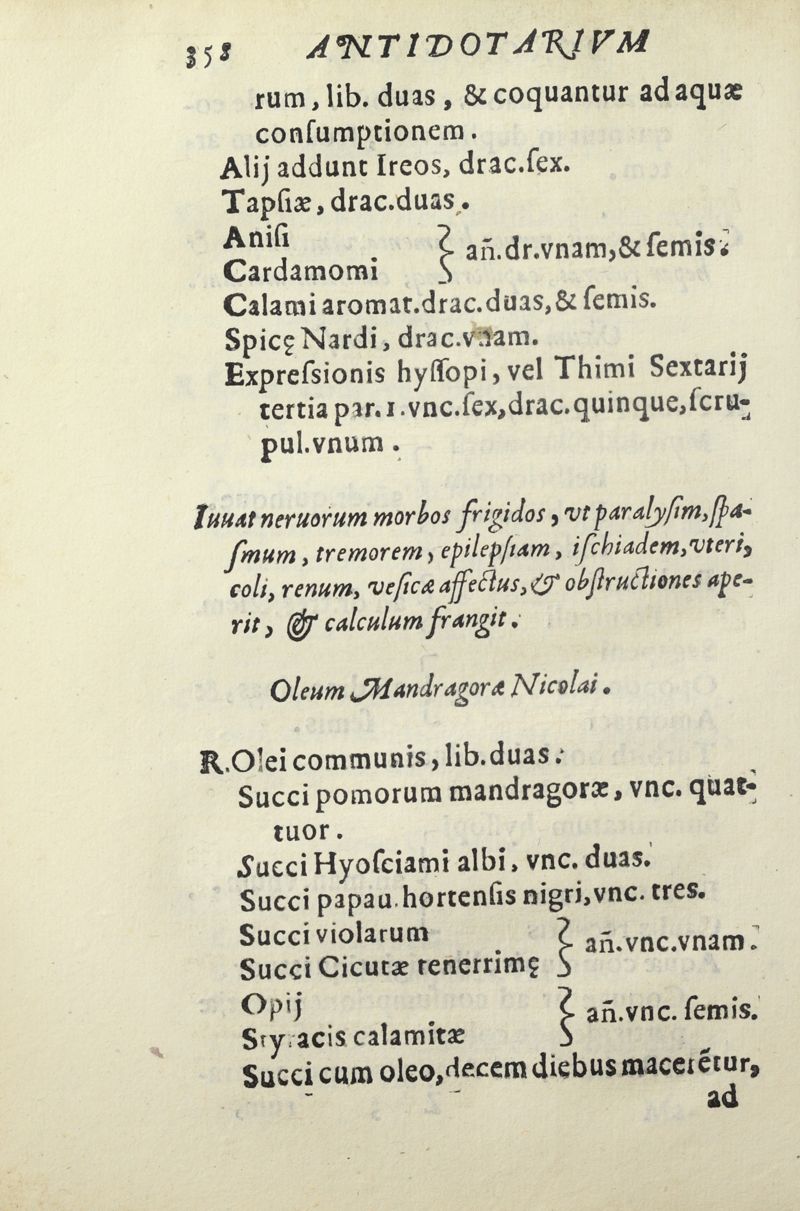 358 ANTIDOTARIVM
rum, lib. duas, & coquantur ad aquæ
conſumptionem.
Alij addunt Ireos, drac.ſex.
Tapſiæ, drac.duas.
Aniſi
Cardamomi } añ.dr.vnam,& ſemis.
Calami aromat.drac.duas,& ſemis.
Spicę Nardi, drac.vnam.
Expreſsionis hyſſopi, vel Thimi Sextarij
tertia par.1.vnc.ſex,drac.quinque,ſcru-
pul.vnum.
Iuuat neruorum morbos frigidos, vt paralyſim,ſpa-
ſmum, tremorem, epilepſiam, iſchiadem,vteri,
coli, renum, veſicæ affectus,& obſtructiones ape-
rit, & calculum frangit.
Oleum Mandragoræ Nicolai.
R.Olei communis, lib.duas.
Succi pomorum mandragoræ, vnc. quat-
tuor.
Succi Hyoſciami albi, vnc. duas.
Succi papau.hortenſis nigri,vnc. tres.
Succi violarum
Succi Cicutæ tenerrimę } añ.vnc.vnam.
Opij
Styracis calamitæ } añ.vnc. ſemis.
Succi cum oleo,decem diebus macerẽtur,
ad